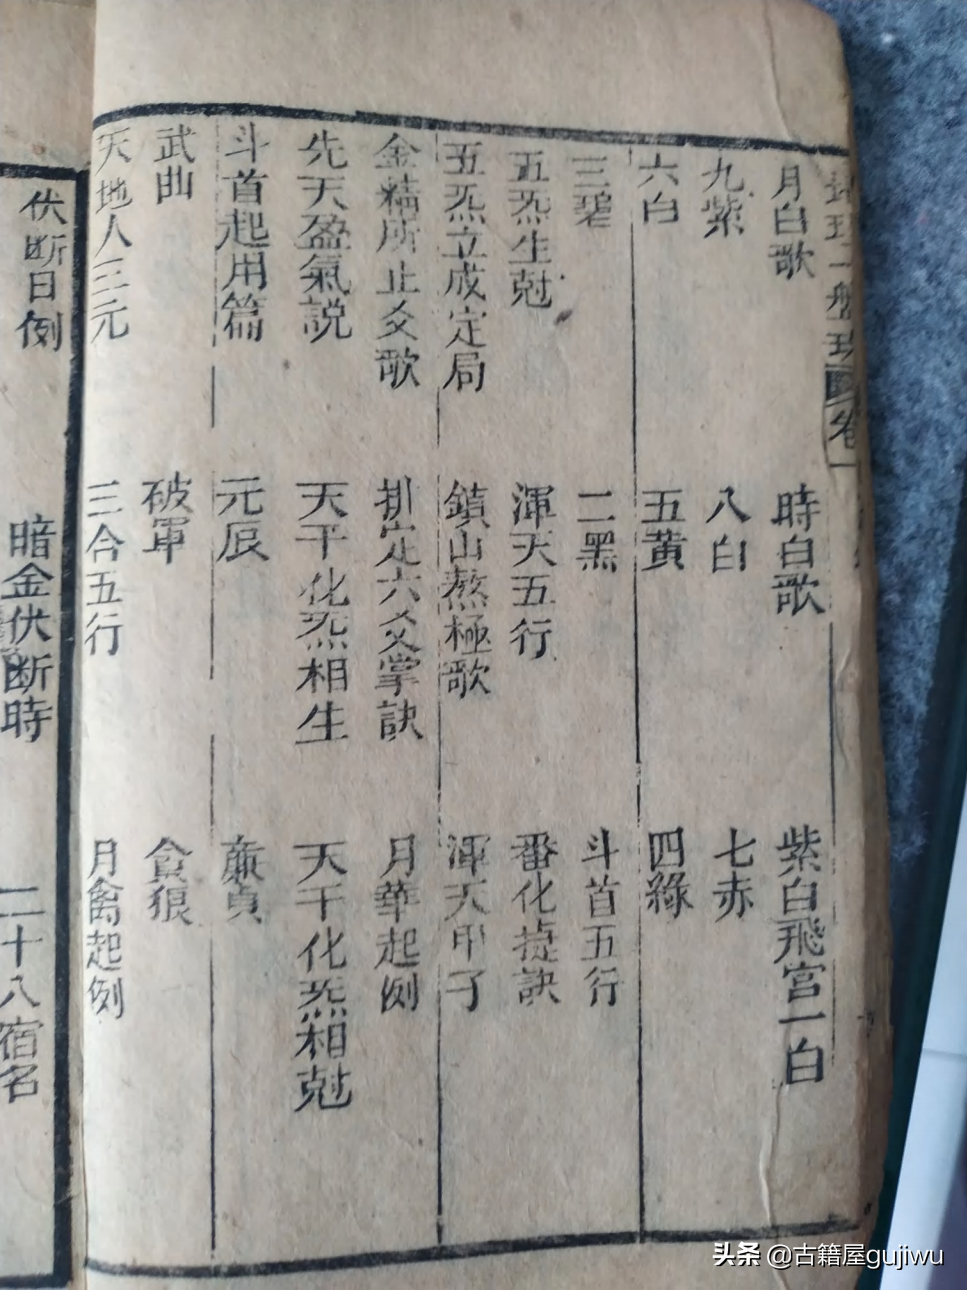 月白歌 時白歌 紫白飛宮一白
九紫 八白 七赤
六白 五黃 四綠
三碧 二黑 斗首五行
五炁生尅 渾天五行 番化捷訣
五炁立成定局 鎮山熬極歌 渾天甲子
金精所止爻歌 排定六爻掌訣 月華起例
先天盈氣説 天干化炁相生 天干化炁相尅
斗首起用篇 元辰 廉貞
武曲 破軍 貪狼
天地人三元 三合五行 月禽起例
伏断日例 暗金伏断時 二十八宿名
头条 @古籍屋gujiwu